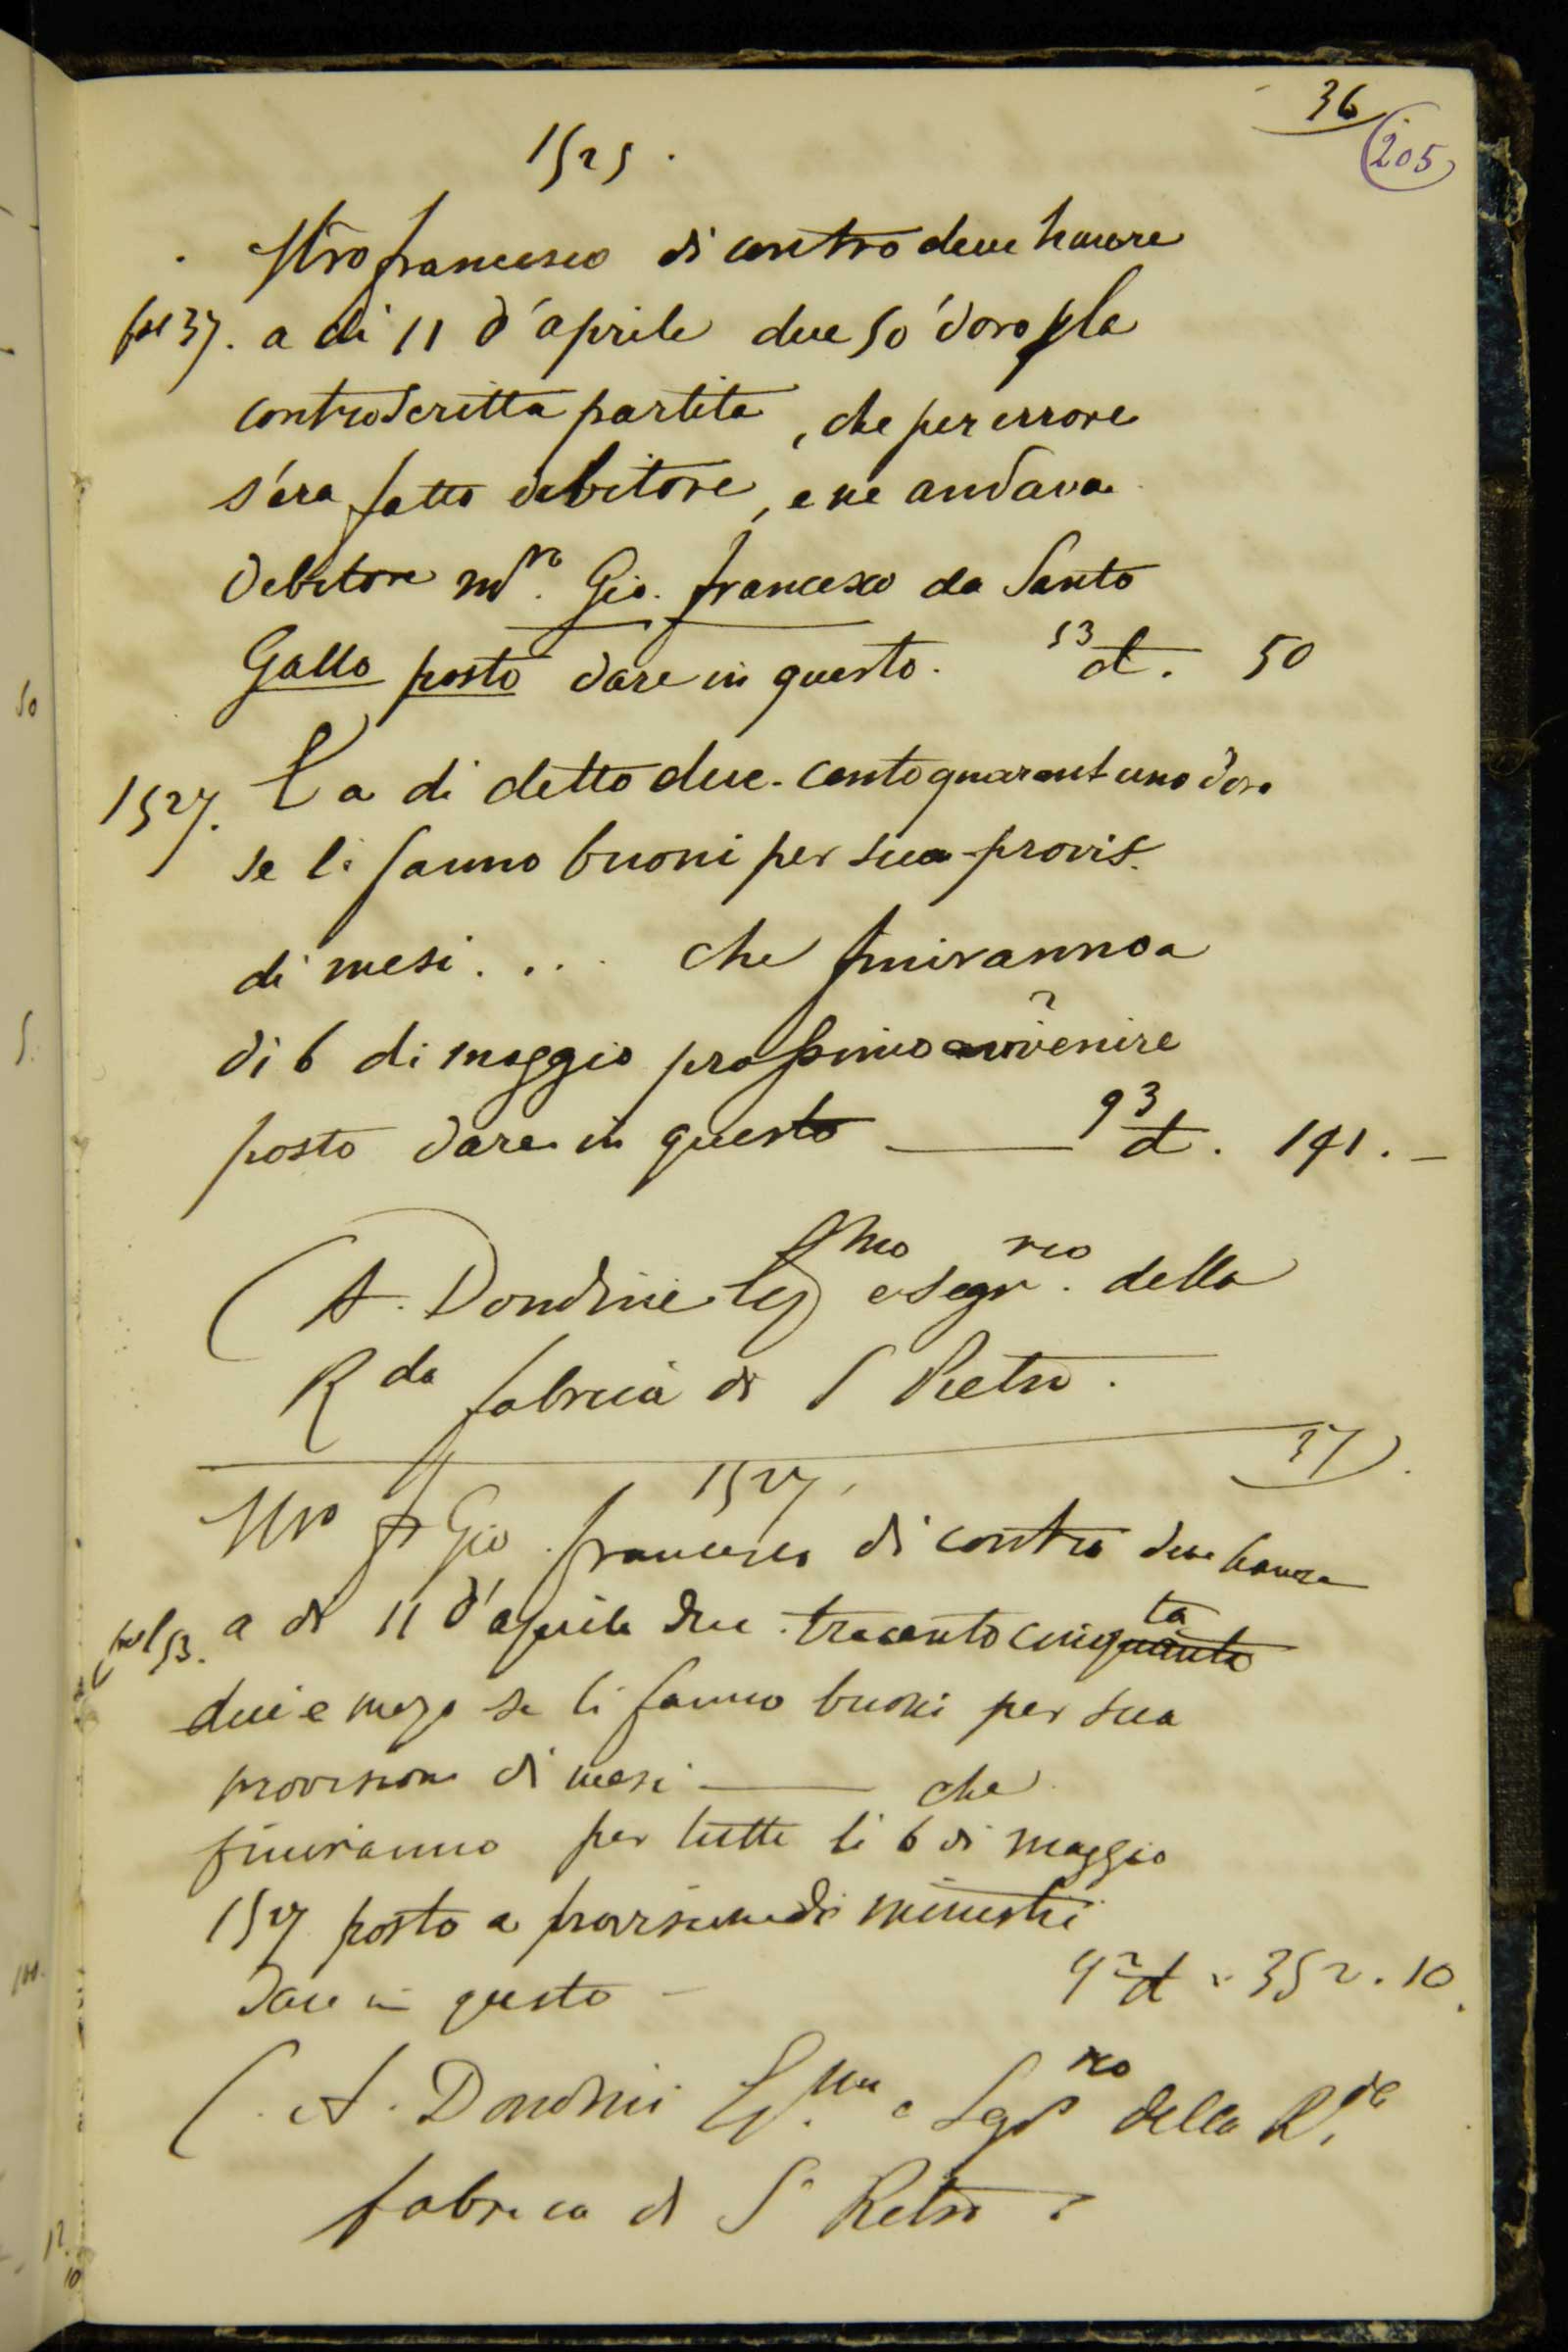 36
205
1525.
Mro francesco di contro deve havere
fol 37. a di 11 d'aprile duc 50 d'oro pla
controscritta partita, che per errore
s'era fatto debitore, e ne andava
debitore mro. Gio. francesco da Santo
Gallo posto dare in questo. 53 d. 50
1527. E a di detto duc. cento quarant uno d'oro
se li fanno buoni per sua provis.
di mesi.... che finiranno a
di 6 di maggio prossimo avvenire
posto dare in questo — 93 d. 141.-
(A. Dondini e segrrio. della
Rda fabrica di S Pietro.
37
1527.
Mro Gio. francesco di contro deve havere
fol 53. a di 11 d'aprile duc. trecento cinquanta
dui e mezo se li fanno buoni per sua
provisione di mesi — che
finiranno per tutti li 6 di maggio
1527 posto a provisione di ministri
Dare in questo - 92 d. 352.10.
(A. Dondini e Segrio della R.da
fabrica di S. Pietro.
50